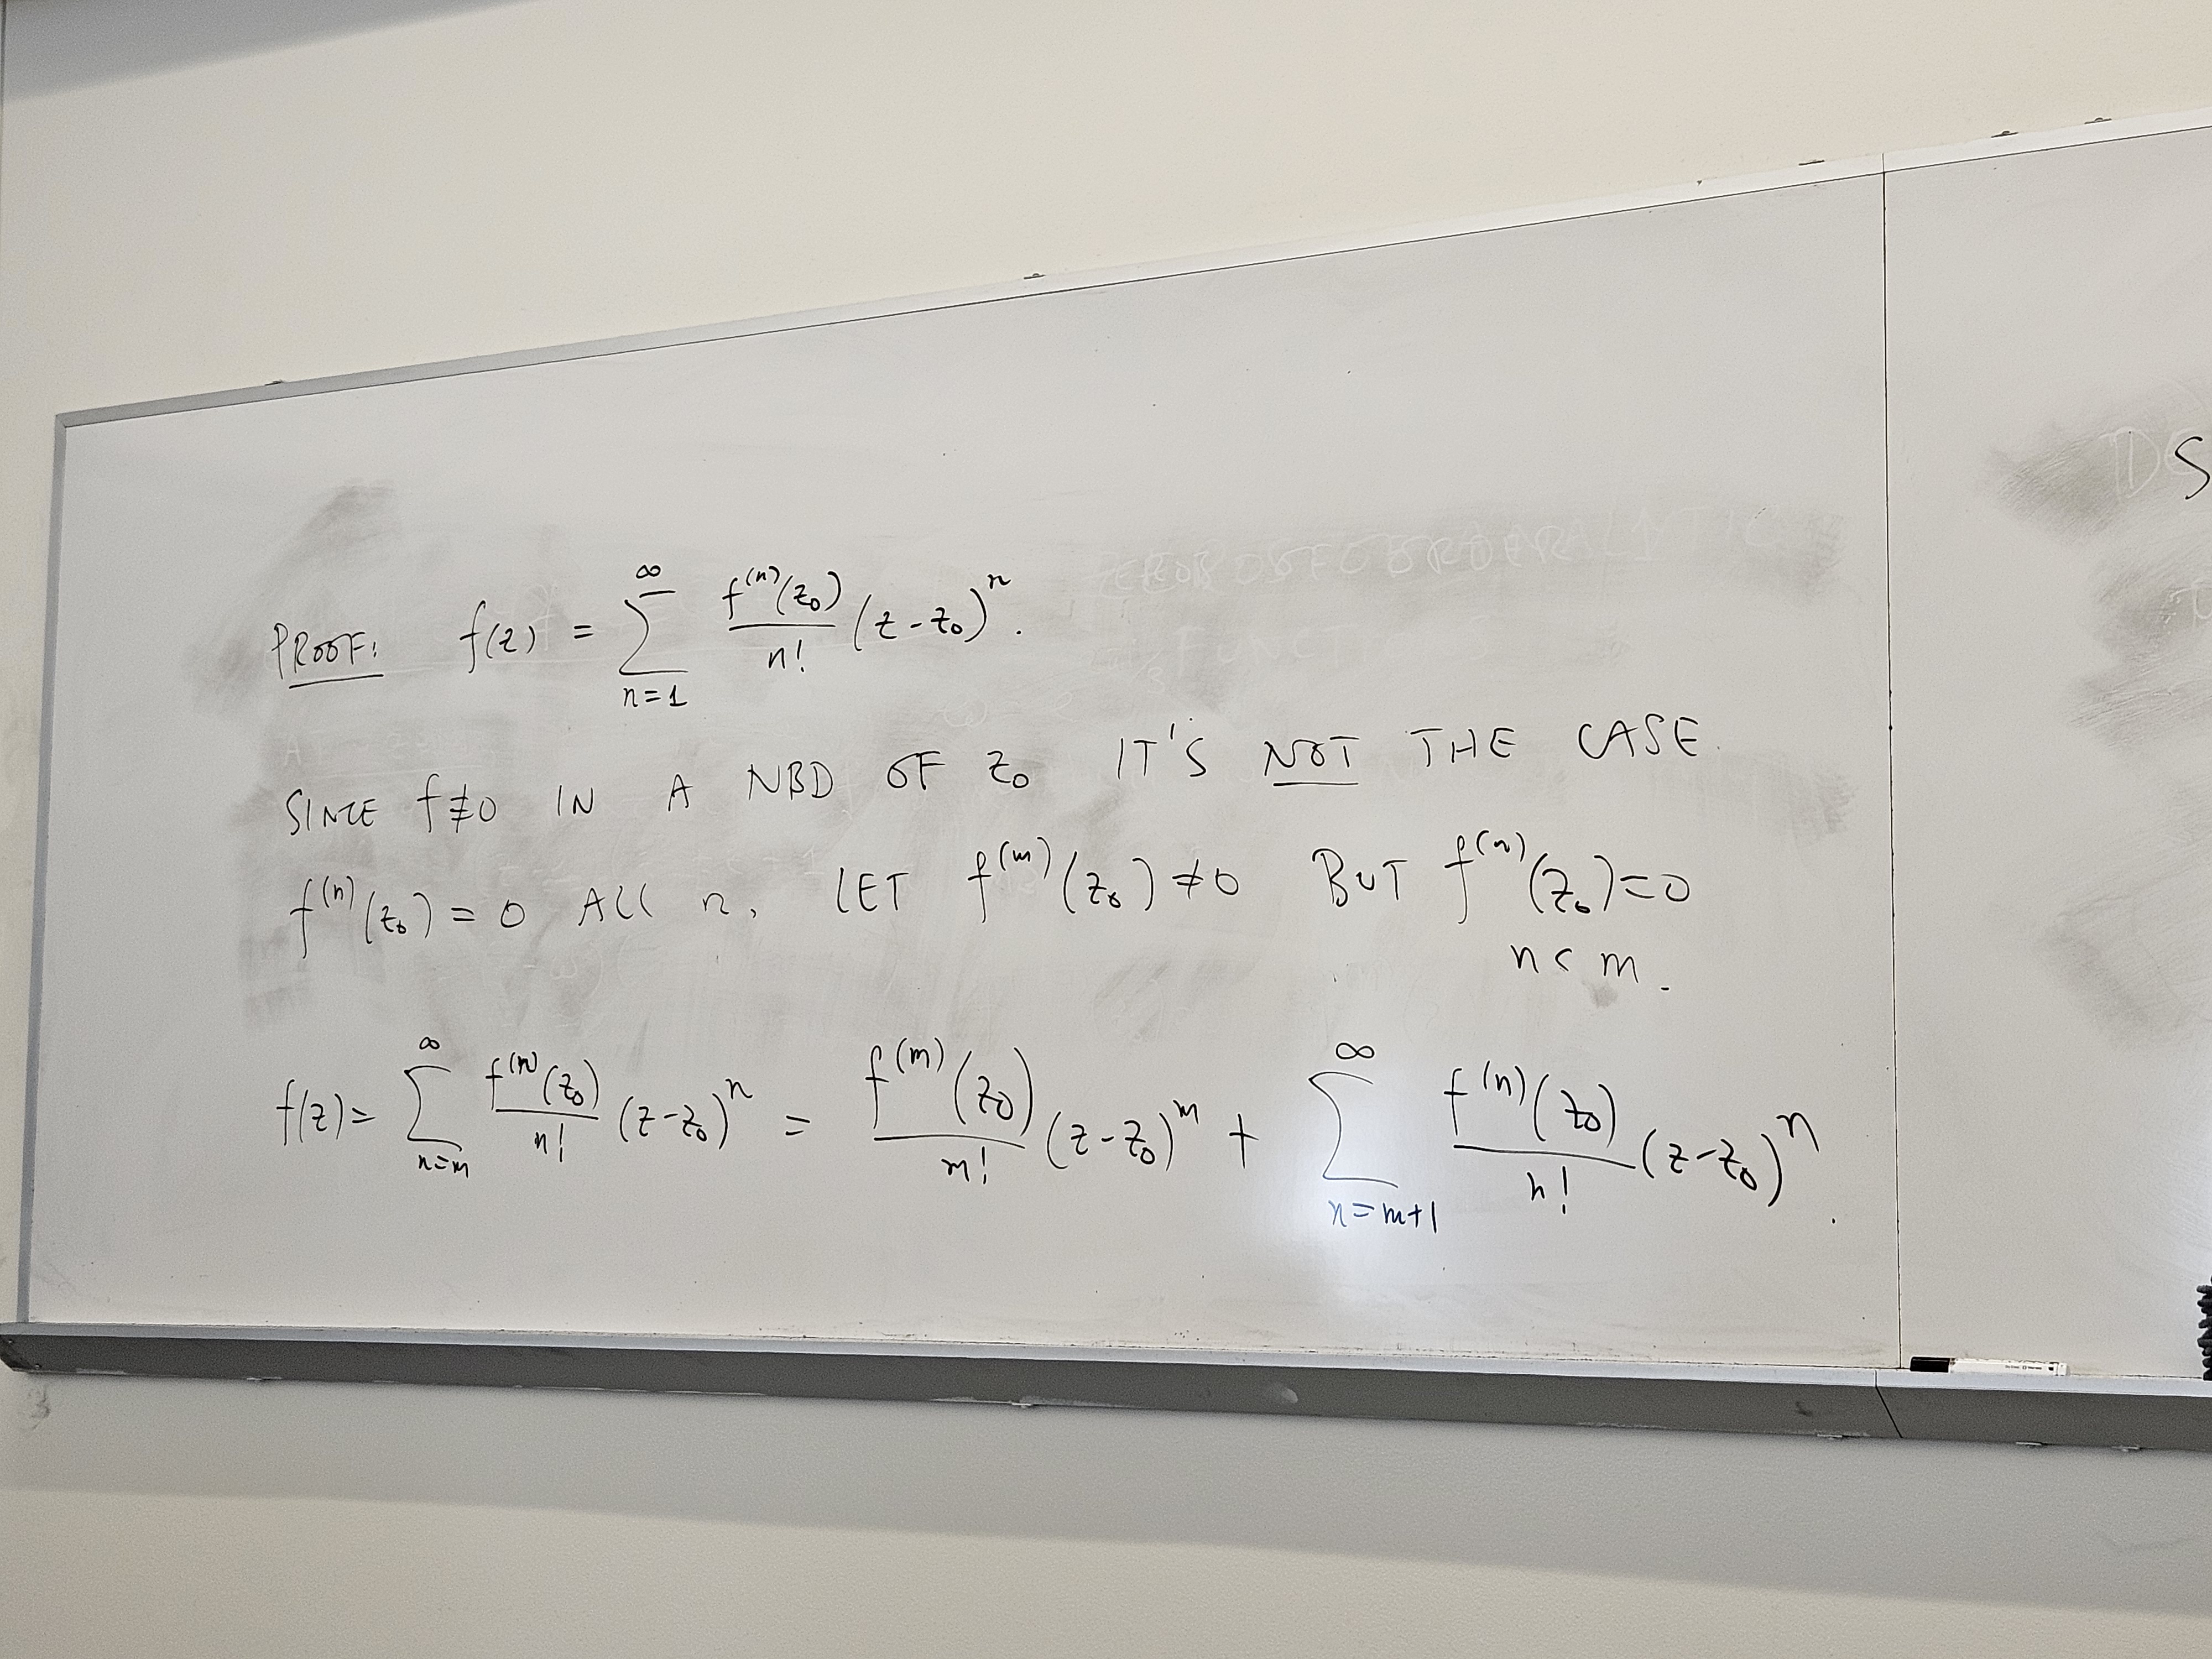 PROOF: f(z) = ∑_{n=1}^{∞} f^{(n)}(z₀)/n! (z-z₀)^n.
SINCE f≢0 IN A NBD OF z₀ IT'S NOT THE CASE
f^{(n)}(z₀) = 0 ALL n. LET f^{(m)}(z₀) ≠ 0 BUT f^{(n)}(z₀) = 0
n < m.
f(z) = ∑_{n=m}^{∞} f^{(n)}(z₀)/n! (z-z₀)^n = f^{(m)}(z₀)/m! (z-z₀)^m + ∑_{n=m+1}^{∞} f^{(n)}(z₀)/n! (z-z₀)^n.